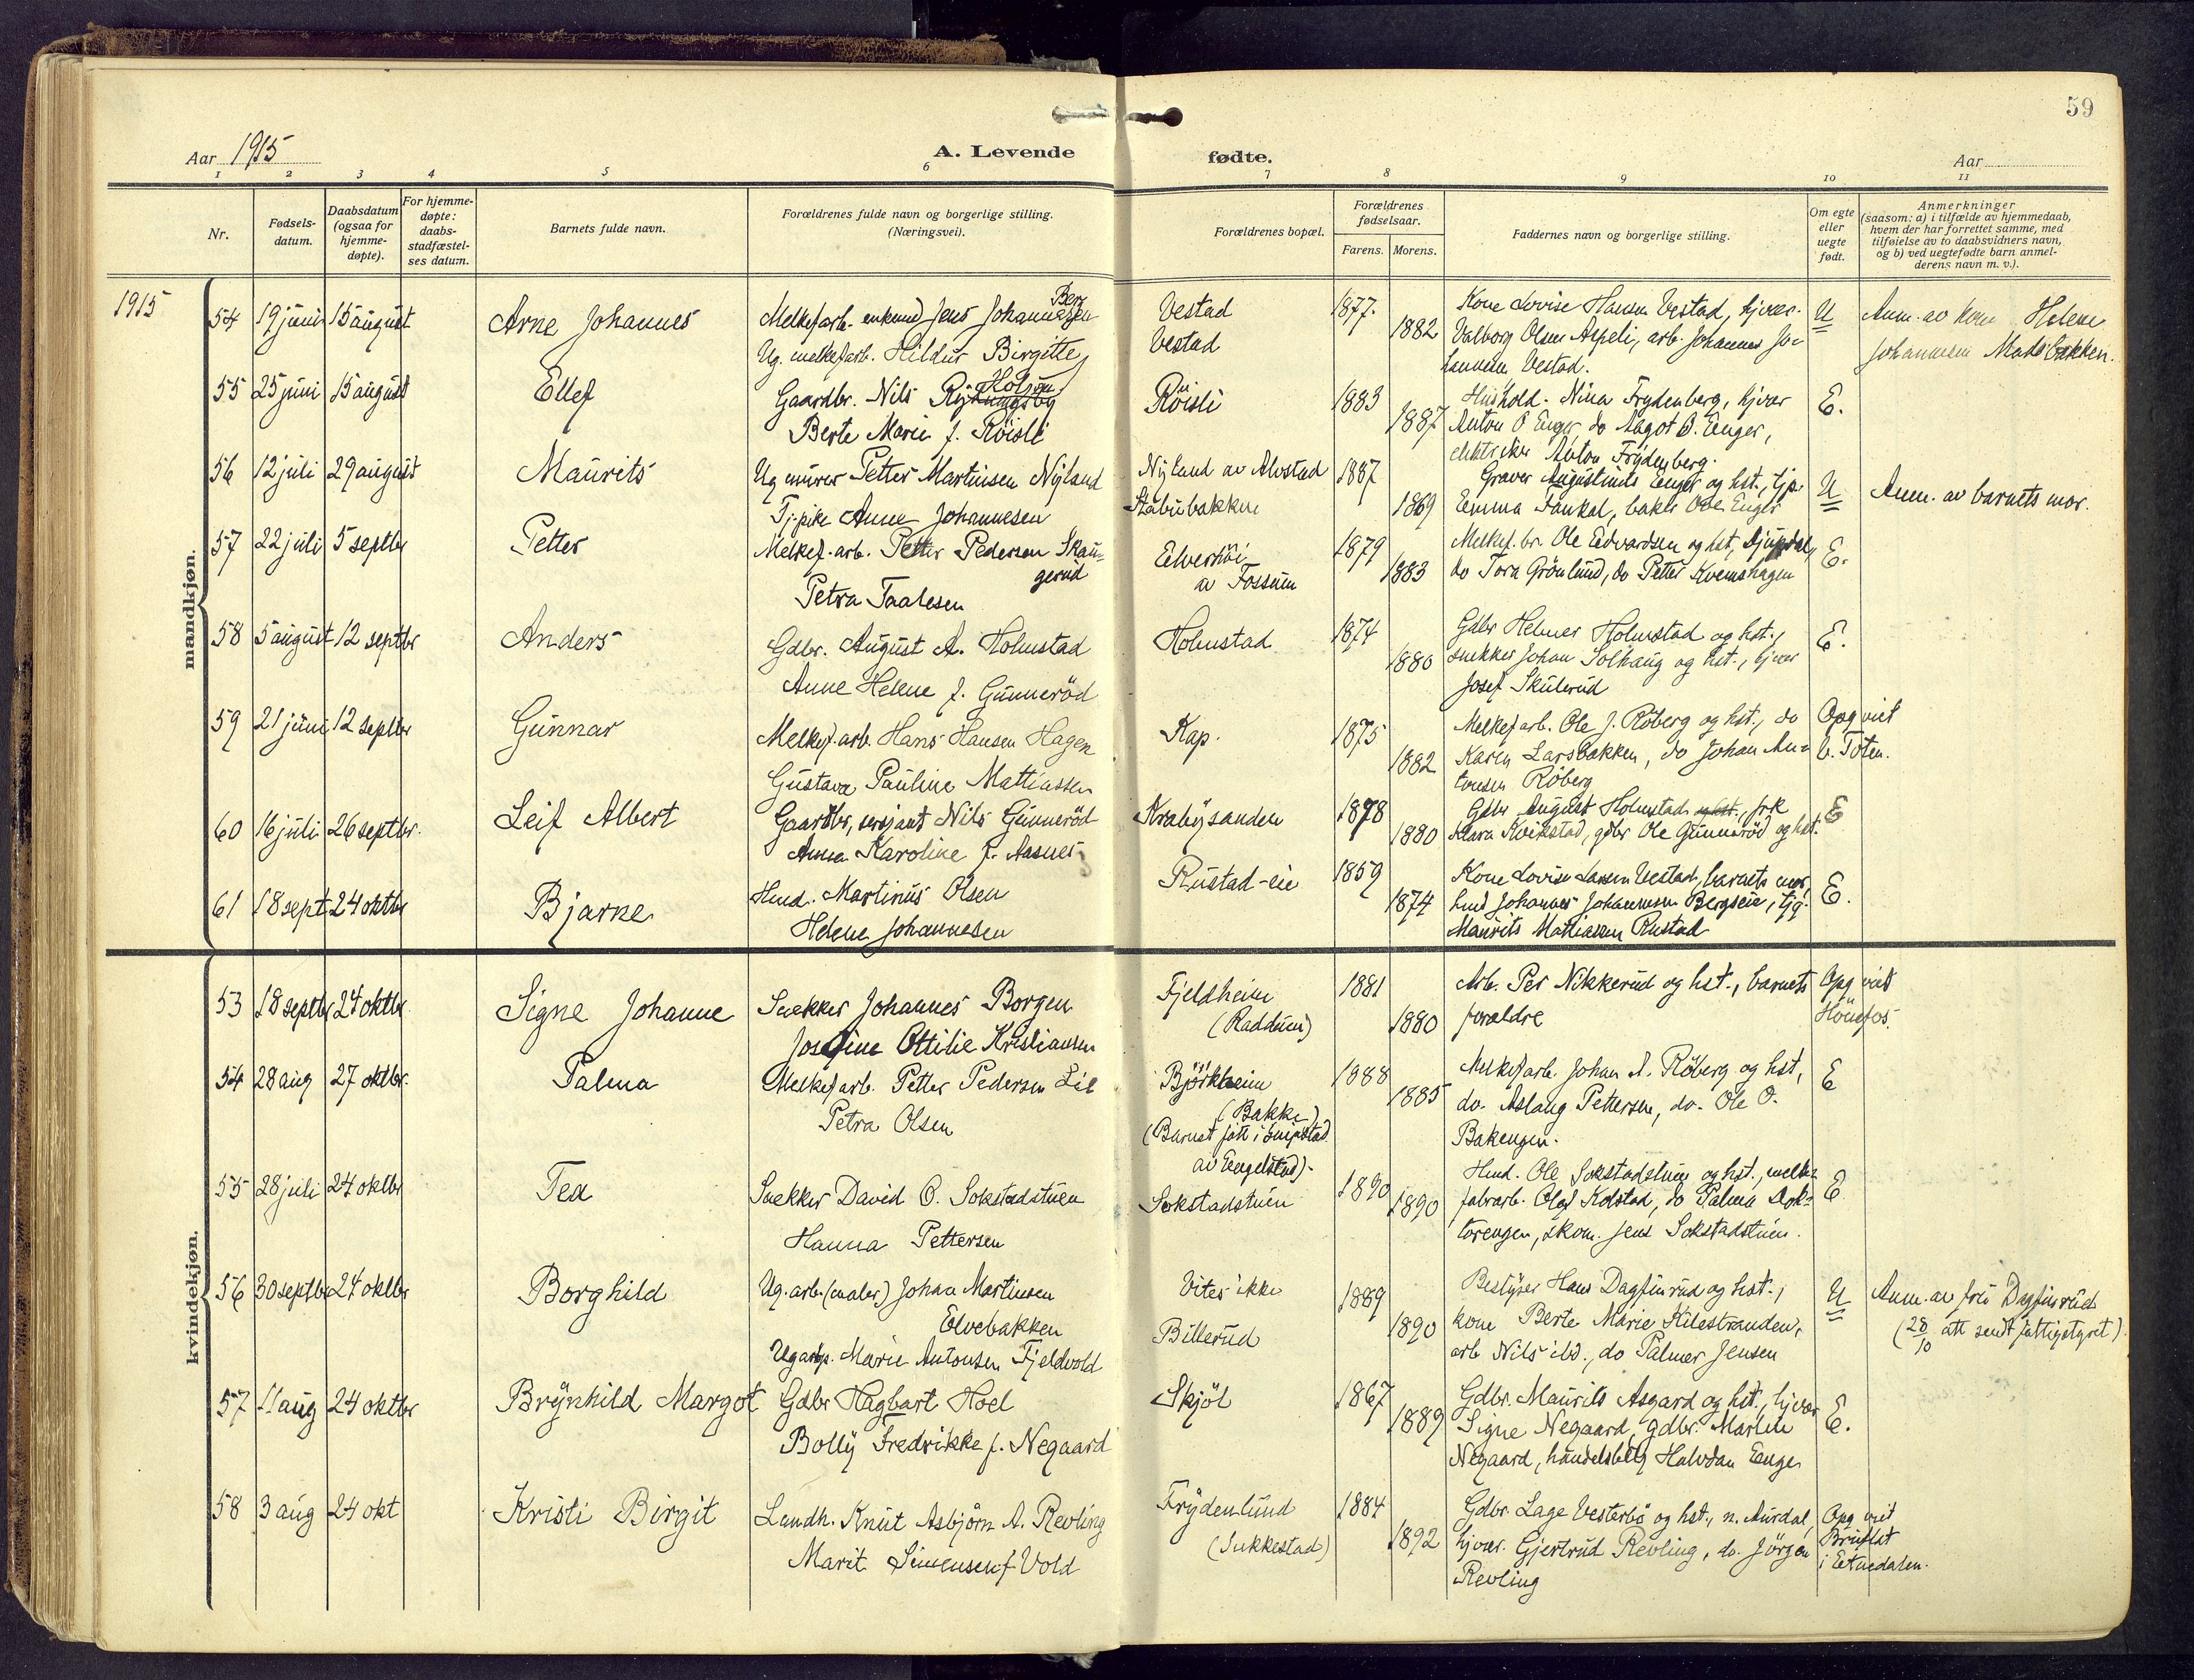 59
Aar 1915
A. Levende fødte.
Aar
1 2 3 4 5 6 7 8 9 10 11
Nr.
Fødsels-
datum.
Daabsdatum
(ogsaa for
hjemme-
døpte).
For hjemme-
døpte:
daabs-
stadfæstel-
ses datum.
Barnets fulde navn.
Forældrenes fulde navn og borgerlige stilling.
(Næringsvei).
Forældrenes bopæl.
Forældrenes
fødselsaar.
Farens. Morens.
Faddernes navn og borgerlige stilling.
Om egte
eller
uegte
født.
Anmerkninger
(saasom: a) i tilfælde av hjemmedaab,
hvem der har forrettet samme, med
tilføielse av to daabsvidners navn,
og b) ved uegtefødte barn anmel-
derens navn m. v.).
1915
mandkjøn.
54 19 juni 15 august Arne Johannes
Melkefarb. enkemd Jens Johannesen Berg
Ug. melkefarb. Hildur Birgitte Holsen
Vestad
Vestad
1877.
1882
Kone Lovise Hansen Vestad, hjvær.
Valborg Olsen Aspeli, arb. Johannes Jo-
hannesen Vestad.
U
Anm. av kone Helene
Johannesen Madsbakken.
55 25 juni 15 august Ellef
Gaardbr. Nils
Berte Marie f. Röisli
Röisli
1883
1887
Hushold. Nina Frydenberg, hjvær
Anton O Enger, do Aagot O. Enger,
elektriker Anton Frydenberg.
E.
56 12 juli 29 august Maurits
Ug murer Petter Martinsen Nyland
Tj.pike Anne Johannesen
Nyland av Alvstad
Stabubakken
1887
1869
Graver Augustinus Enger og hst., tjp.
Emma Fankal, baker Ole Enger
U
Anm. av barnets mor.
57 22 juli 5 septbr Petter
Melkef.arb. Petter Pedersen Skau-
gerud
Petra Taalesen
Elverhöi
av Fossum
1879
1883
Melkef.br. Ole Edvardsen og hst, Djupdal,
do Tora Grönlund, do Petter Kvemshagen
E.
58 5 august 12 septbr Anders
Gdbr. August A. Holmstad
Anne Helene f. Gunneröd
Holmstad
1874
1880
Gdbr Helmer Holmstad og hst.,
snekker Johan Solhaug og hst., hjvær
Josef Skulerud
E.
59 21 juni 12 septbr Gunnar
Melkef.arb. Hans Hansen Hagen
Gustava Pauline Mathiassen
Kap.
1875
1882
Melkefarb. Ole J. Röberg og hst., do
Karen Larsbakken, do Johan An-
tonsen Röberg
Opg viet
V. Toten.
60 16 juli 26 septbr. Leif Albert
Gaardbr, sersjant Nils Gunneröd
Anna Karoline f. Aasnes
Krabysanden
1878
1880
Gdbr August Holmstad og hst., frk
Klara Kvikstad, gdbr Ole Gunneröd og hst.
E
61 18 sept. 24 oktbr Bjarne
Hmd. Martinus Olsen
Helene Johannesen
Rustad-eie
1859
1874
Kone Lovise Larsen Vestad, barnets mor,
hmd Johannes Johannesen Bergseie, tjg.
Maurits Mathiassen Rustad
E.
kvindekjøn.
53 18 septbr 24 oktbr. Signe Johanne
Snekker Johannes Borgen
Josefine Ottilie Kristiansen
Fjeldheim
(Raddum)
1881
1880
Arb. Per Nikkerud og hst., barnets
forældre
Opg viet
Hönefos.
54 28 aug 27 oktbr. Palma
Melkefarb. Petter Pedersen Lie
Petra Olsen
Björkheim
(Bakke)
(Barnet født i
av Engelstad).
1888
1885
Melkefarb. Johan A. Röberg og hst,
do. Aslaug Pettersen, do. Ole O.
Bakengen.
E
55 28 juli 24 oktbr Tea
Snekker David O. Sokstadstuen
Hanna Pettersen
Sokstadstuen
1890
1890
Hmd. Ole Sokstadstuen og hst., melke-
fabrarb. Olaf Kolstad, do Palma Dok-
torengen, skom. Jens Sokstadstuen.
E
56 30 septbr 24 oktbr Borghild
Ug. arb. (maler) Johan Martinsen
Elvebakken
Ug arbp. Marie Antonsen Fjeldvold
Vites ikke
Billerud
1889
1890
Bestyrer Hans Dagfinrud og hst.,
kone Berte Marie Kilestranden,
arb Nils ibd., do Palmer Jensen
U
Anm. av fru Dagfinrud
(28/10 att sendt fattigstyret).
57 11 aug 24 oktbr Brynhild Margot
Gdbr Hagbart Hoel
Bolly Fredrikke f. Negaard
Skjöl
1867
1889
Gdbr. Maurits Asgard og hst., hjvær
Signe Negaard, gdbr. Martin
Negaard, handelsbetj Halvdan Enger
E.
58 3 aug 24 okt Kristi Birgit
Landh. Knut Asbjörn A. Revling
Marit Simensen f. Vold
Frydenlund
(Sukkestad)
1884
1892
Gdbr. Lage Vesterbö og hst., n. Aurdal,
hjvær. Gjertrud Revling, do. Jörgen
Revling
Opg viet
Bruflat
i Etnedalen.